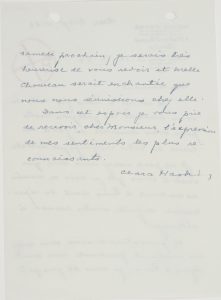 samedi prochain, je serais très
heureuse de vous revoir et Melle
Thureau serait enchantée que
nous nous réunissions chez elle.
Dans cet espoir je vous prie
de recevoir, cher Monsieur, l'expression
de mes sentiments les plus re
connaissants.
Clara Haskil